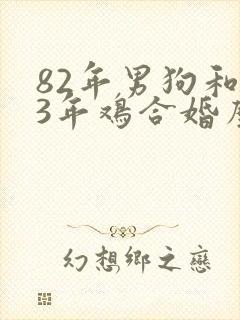 82年男狗和
3年鸡合婚
幻想鄉之戀